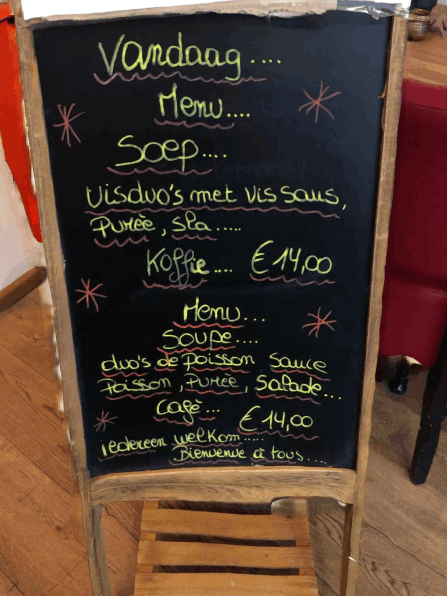 Vandaag....
Menu....
Soep....
Visduo's met Vis saus,
Purèe, sla.....
Koffie.... €14,00
Menu...
Soupe....
duo's de poisson Sauce
Poisson, Puree, Salade...
Cafè... €14,00
iedereen welkom.....
Bienvenue à tous....